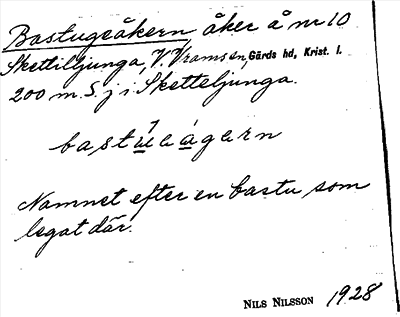 Bastugeåkern, åker å nr 10
Skettiljunga, V. Vram sn, Gärds hd, Krist. l.
200 m. S. j i Sketteljunga.
bastúaágarn
Namnet efter en bastu som
legat där.
NILS NILSSON 1928